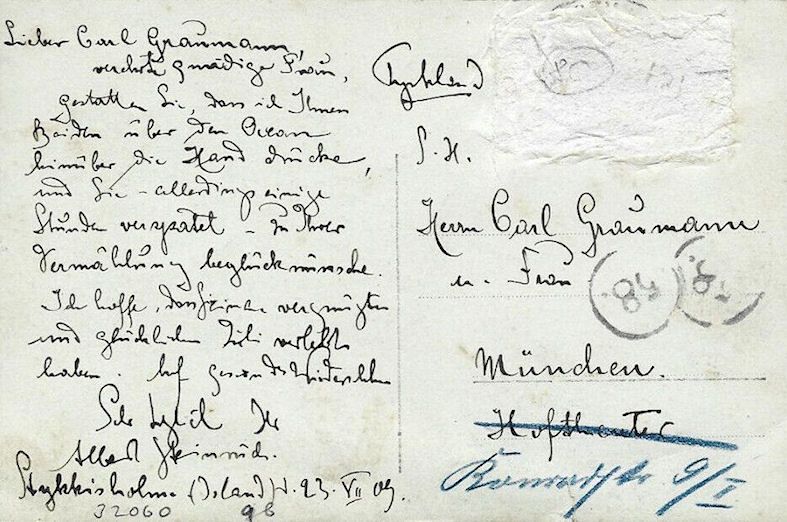 Lieber Carl Graumann,
verehrte gnädige Frau,
gestatten Sie, dass ich Ihnen
Beiden über den Ocean
hinüber die Hand drücke,
und Sie - allerdings einige
Stunden verspätet - zu Ihrer
Vermählung beglückwünsche.
Ich hoffe, dass Sie vergnügten
und glücklichen verlebt
haben. Auf gesundes Wiedersehen
Ihr
Albert Steinrück.
Stykkisholm (Island) d. 23. VII 09.
32060 98
Tyskland
S. H.
Herrn Carl Graumann
u. Frau
84
München.
Hoftheater
Konradstr 9/I